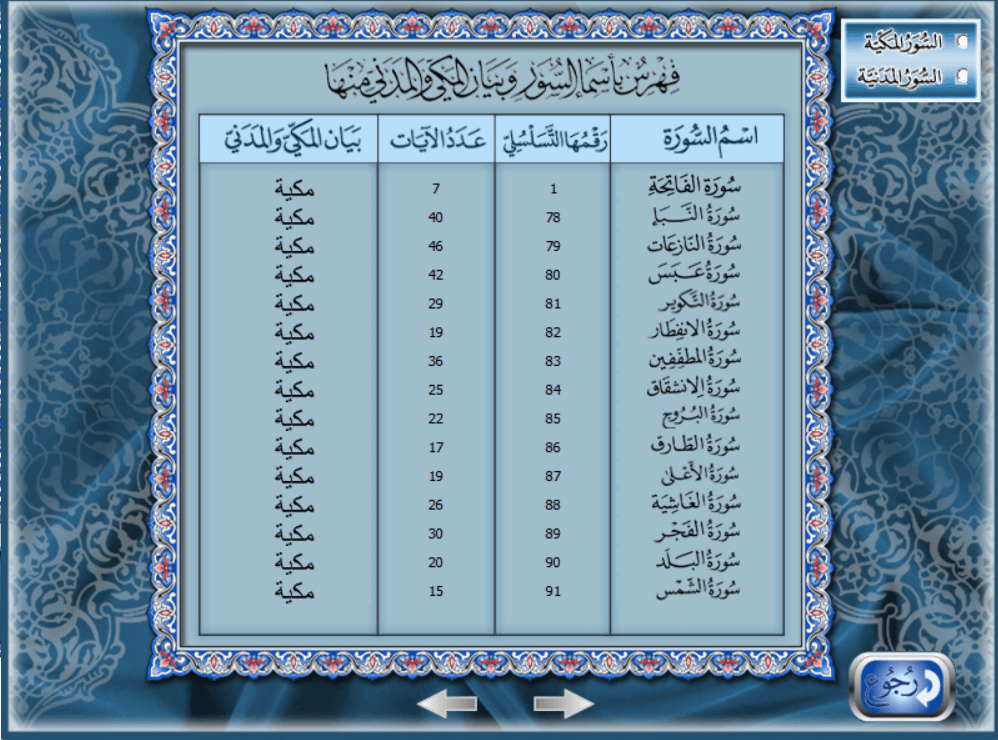 السُّوَرُ المَكِّيَّة
السُّوَرُ المَدَنِيَّة
فِهْرِسٌ بِأَسْمَاءِ السُّوَرِ وَبَيَانِ المَكِّي وَالمَدَنِي مِنْهَا
اسْمُ السُّورَة رَقْمُهَا التَّسَلْسُلِيّ عَدَدُ الآيَات بَيَان المَكِّيّ وَالمَدَنِيّ
سُورَة الفَاتِحَةِ 1 7 مكية
سُورَةُ النَّبَإِ 78 40 مكية
سُورَةُ النَّازِعَات 79 46 مكية
سُورَةُ عَبَسَ 80 42 مكية
سُورَةُ التَّكْوِير 81 29 مكية
سُورَةُ الانفِطَار 82 19 مكية
سُورَةُ المطَفِّفِين 83 36 مكية
سُورَةُ الِانشقَاق 84 25 مكية
سُورَةُ البُرُوج 85 22 مكية
سُورَةُ الطَّارِق 86 17 مكية
سُورَةُ الأَعْلىٰ 87 19 مكية
سُورَةُ الغَاشِيَة 88 26 مكية
سُورَةُ الفَجْر 89 30 مكية
سُورَةُ البَلَد 90 20 مكية
سُورَةُ الشَّمْس 91 15 مكية
رُجُوع